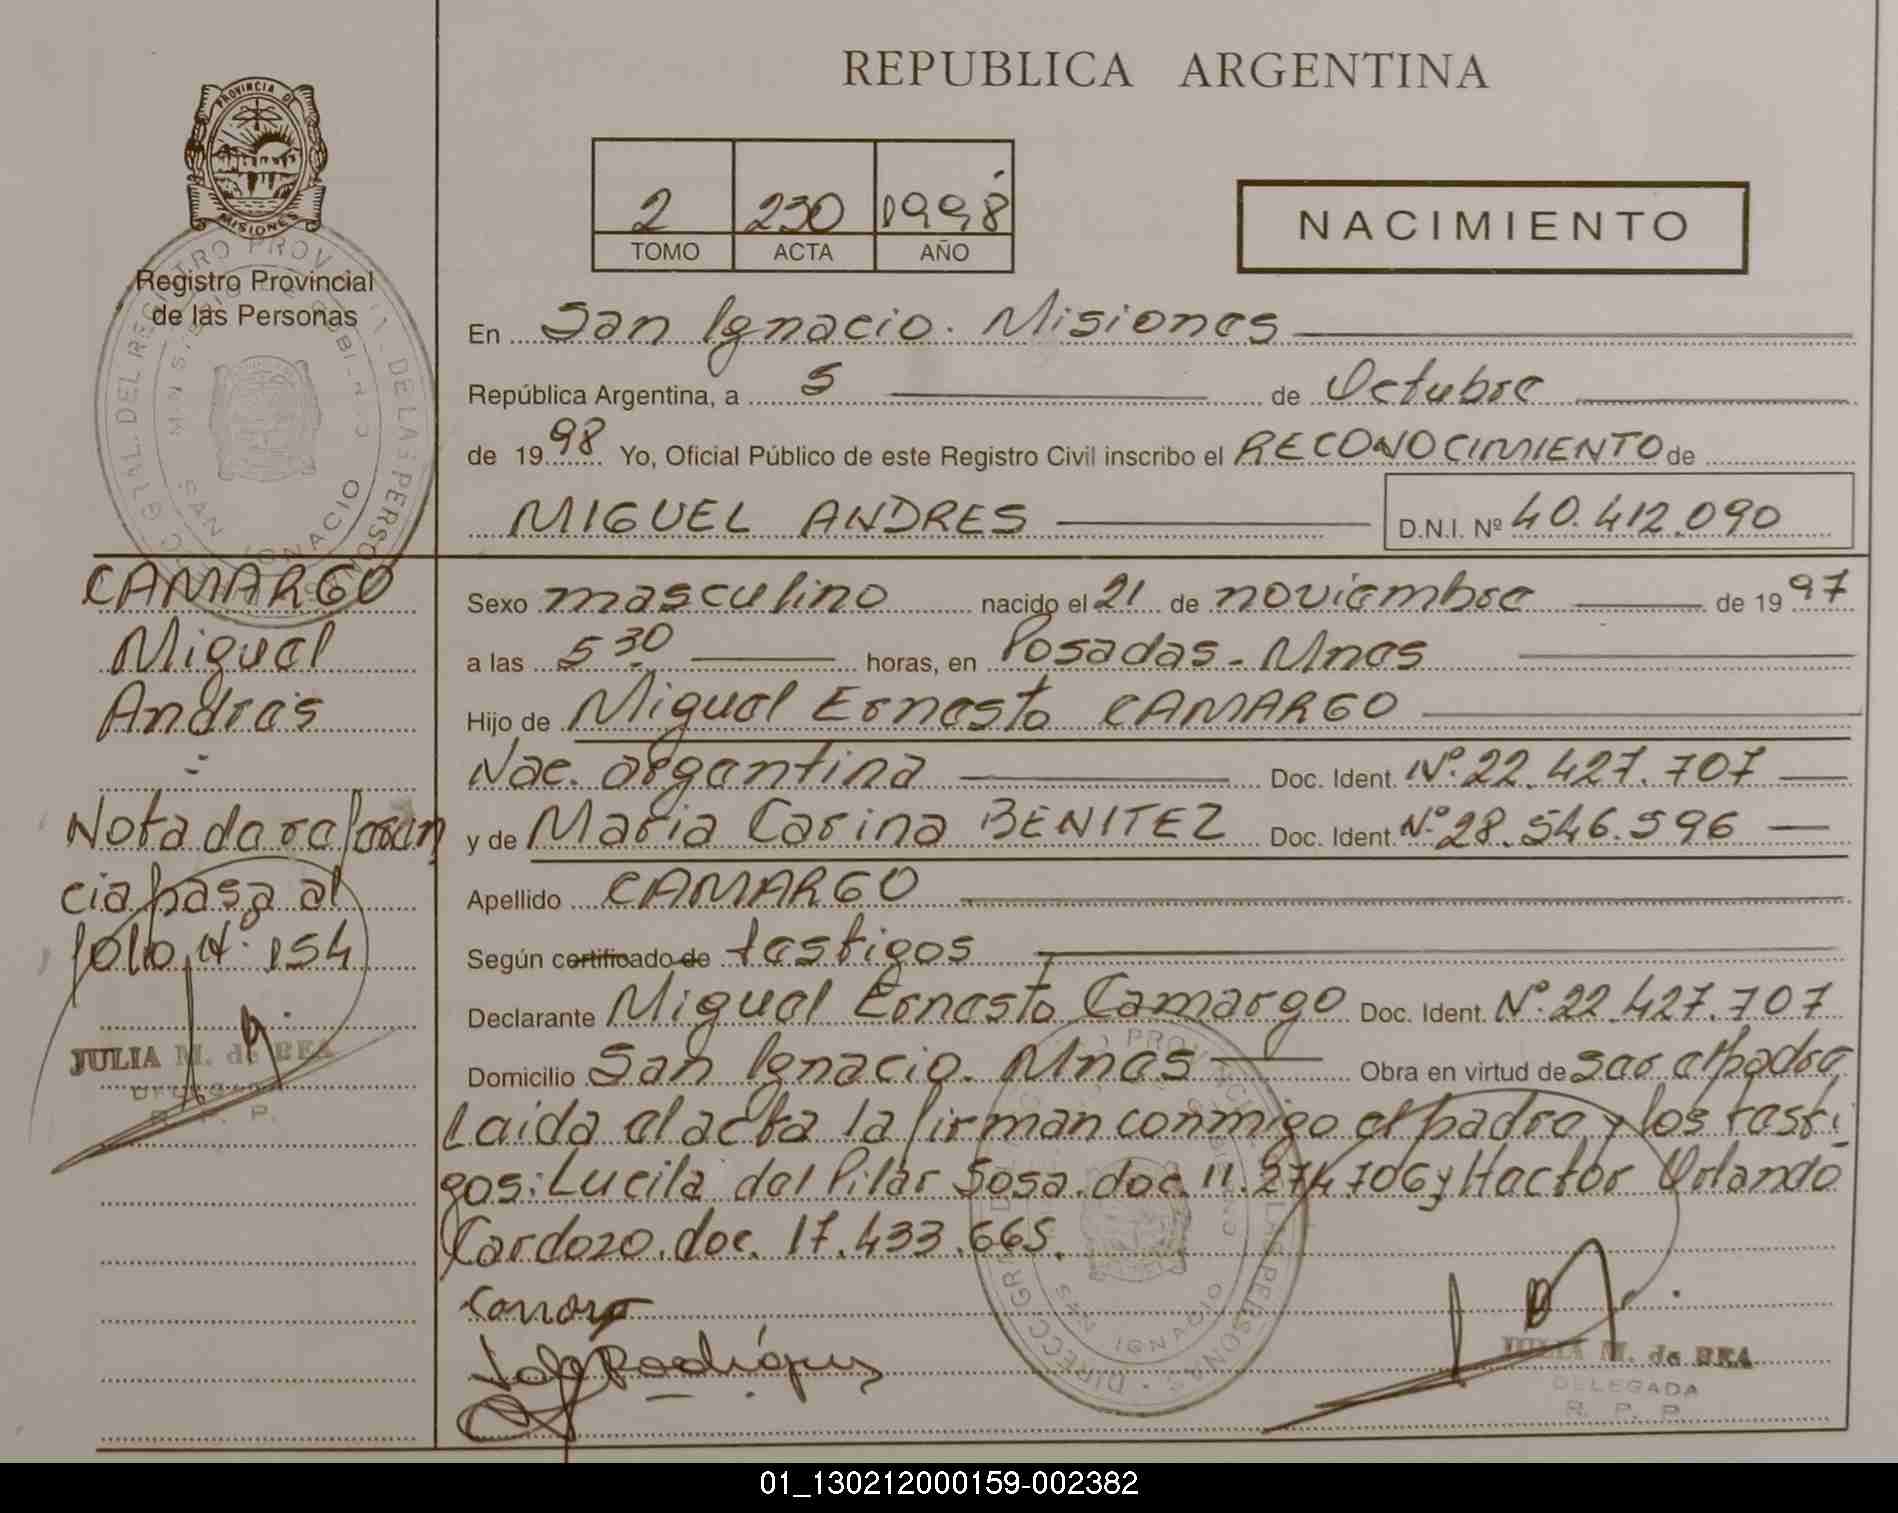 REPUBLICA ARGENTINA
PROVINCIA DE
MISIONES
Registro Provincial
de las Personas
2 230 1998
TOMO ACTA AÑO
NACIMIENTO
En San Ignacio. Misiones
República Argentina, a 5 de Octubre
de 1998 Yo, Oficial Público de este Registro Civil inscribo el RECONOCIMIENTO de
MIGUEL ANDRES D.N.I. Nº 40.412.090
CAMARGO
Miguel
Andrés
Nota de referen
cia pasa al
folio Nº 154
JULIA M. de REA
DELEGADA
R. P. P.
Sexo masculino nacido el 21 de noviembre de 1997
a las 5 30 horas, en Posadas - Mnes
Hijo de Miguel Ernesto CAMARGO
Nac. argentina Doc. Ident. Nº 22.427.707
y de Maria Carina BENITEZ Doc. Ident. Nº 28.546.596
Apellido CAMARGO
Según certificado de testigos
Declarante Miguel Ernesto Camargo Doc. Ident. Nº 22.427.707
Domicilio San Ignacio. Mnes Obra en virtud de ser el padre
Leida el acta la firman conmigo el padre y los testi
gos: Lucila del Pilar Sosa. doc. 11.274.706 y Hector Orlando
Cardozo. doc. 17.433.665.
JULIA M. de REA
DELEGADA
R. P. P.
01_130212000159-002382